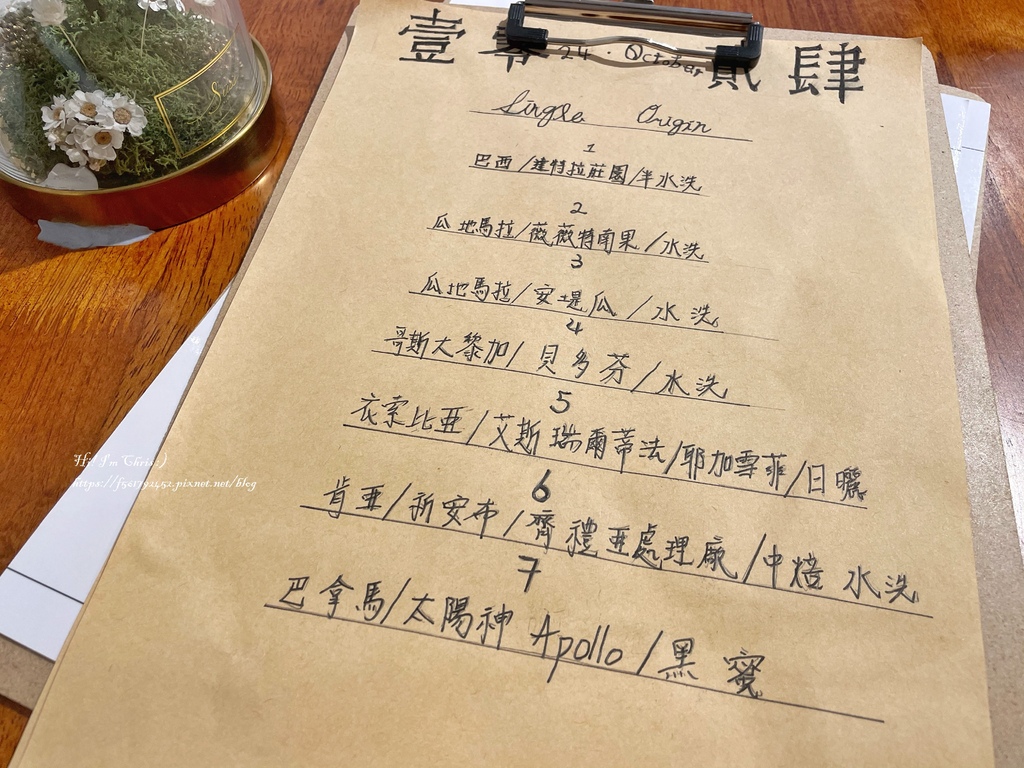 壹零 24 · October 貳肆
Single Origin
1
巴西/達特拉莊園/半水洗
2
瓜地馬拉/薇薇特南果/水洗
3
瓜地馬拉/安堤瓜/水洗
4
哥斯大黎加/貝多芬/水洗
5
衣索比亞/艾斯瑞爾蒂法/耶加雪菲/日曬
6
肯亞/新安布/齊禮亞處理廠/中焙 水洗
7
巴拿馬/太陽神 Apollo/黑蜜
Hi! I'm Chris:)
https://j501792452.pixnet.net/blog